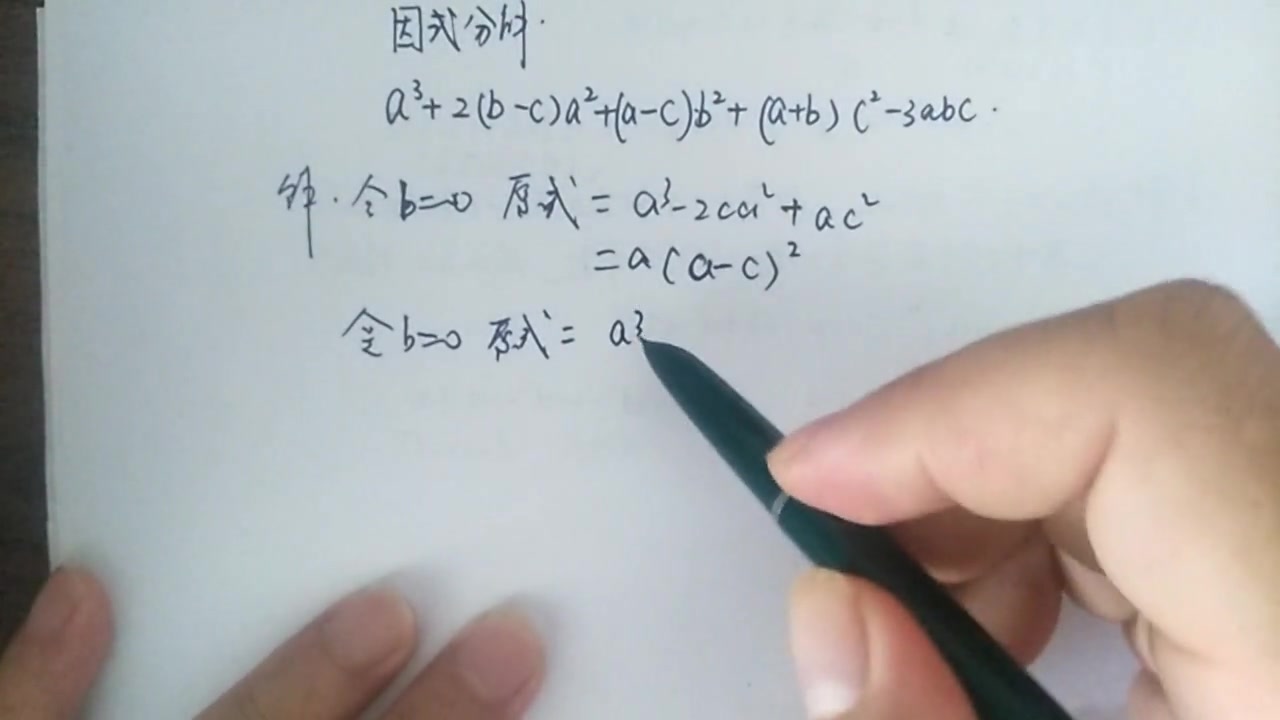 因式分解.
a³+2(b-c)a²+(a-c)b²+(a+b)c²-3abc.
解.令b=0 原式=a³-2ca²+ac²
=a(a-c)²
令b=0 原式=a³